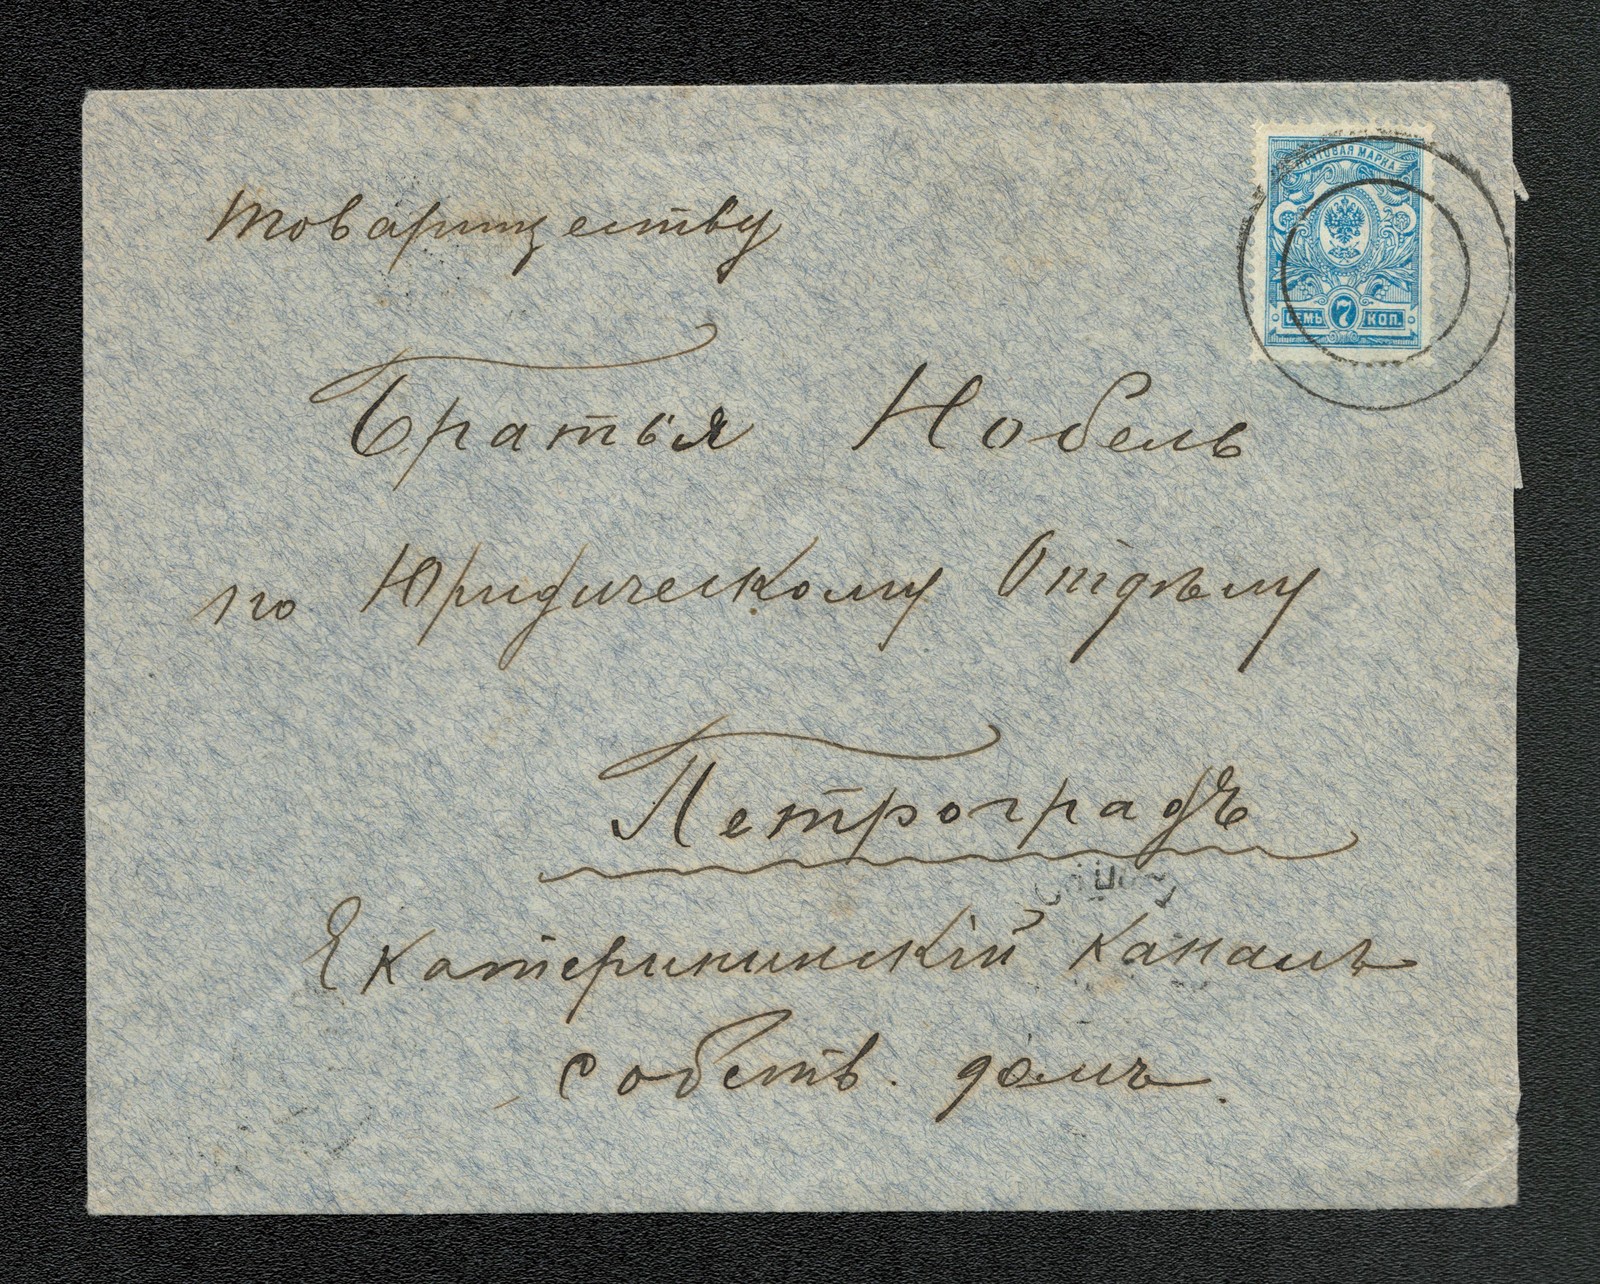 ПОЧТОВАЯ МАРКА
СЕМЬ 7 КОП.
Товариществу
Братья Нобель
по Юридическому Отдѣлу
Петроградъ
Екатерининскій каналъ
собств. домъ.